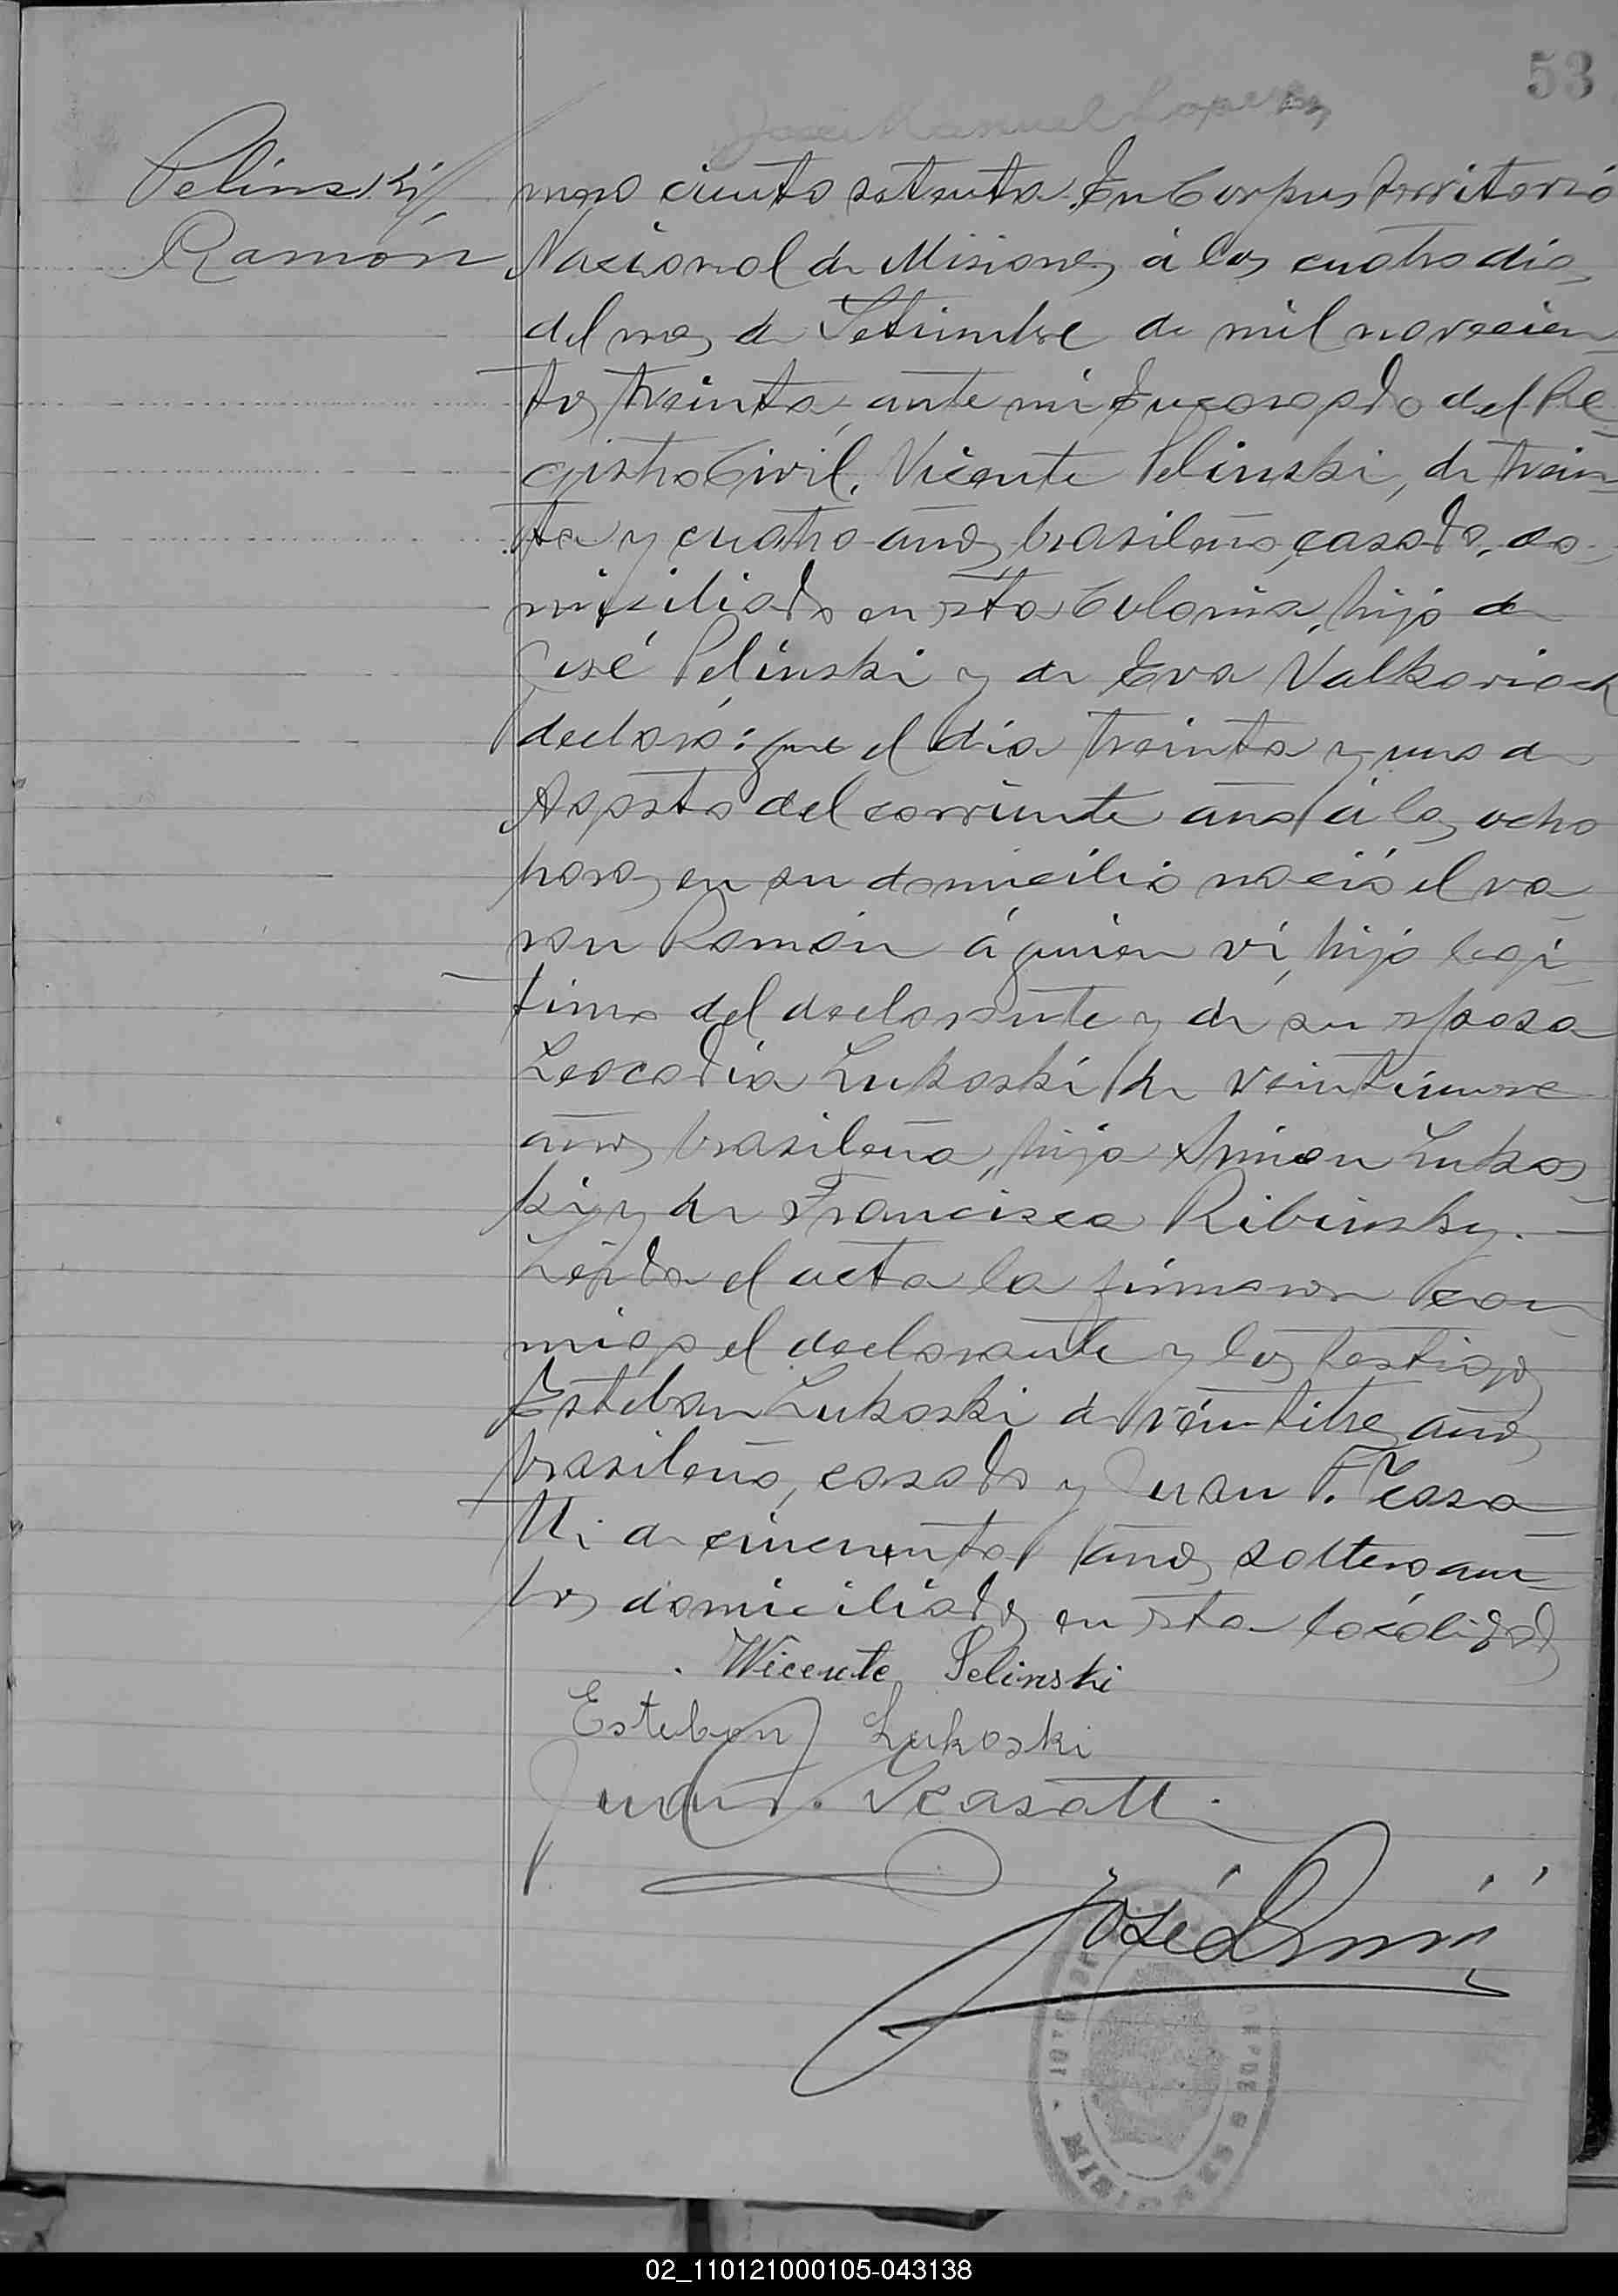 53
José Manuel Lopez
Pelinski
Ramón
mero ciento setenta. En Corpus Territorio
Nacional de Misiones, á los cuatro dias
del mes de Setiembre de mil novecien
tos treinta, ante mi Encargado del Re
gistro Civil, Vicente Pelinski, de trein
ta y cuatro años, brasileño, casado, do
miciliado en esta Colonia, hijo de
José Pelinski y de Eva Valkoviach
declaró: que el día treinta y uno de
Agosto del corriente año á las ocho
horas, en su domicilio nació el va
ron Ramón á quien ví, hijo legí
timo del declarante y de su esposa
Leocadia Lukoski de veintinueve
años, brasileña, hija Simon Lukos
ki y de Francisca Ribinsky.
Leída el acta la firmaron con
migo el declarante y los testigos
Esteban Lukoski de veintitres años
brasileño, casado y Juan F. Icasa
tti de cincuenta años, soltero am
bos domiciliados en esta localidad
Wicente Pelinski
Esteban Lukoski
Juan F. Icasatti
José
MISIONES
02_110121000105-043138